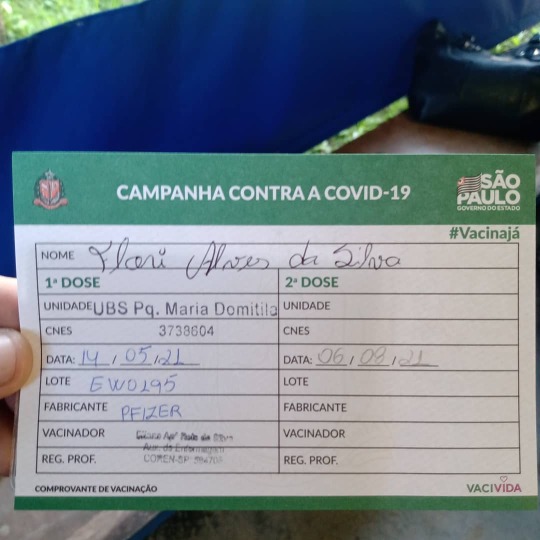 CAMPANHA CONTRA A COVID-19
SÃO PAULO
GOVERNO DO ESTADO
#Vacinajá
NOME Flori Alves da Silva
1ª DOSE
UNIDADE UBS Pq. Maria Domitila
CNES 3738604
DATA: 14 / 05 / 21
LOTE EW0195
FABRICANTE PFIZER
VACINADOR
Aux. de Enfermagem
REG. PROF. COREN-SP
2ª DOSE
UNIDADE
CNES
DATA: 06 / 08 / 21
LOTE
FABRICANTE
VACINADOR
REG. PROF.
COMPROVANTE DE VACINAÇÃO
VACIVIDA